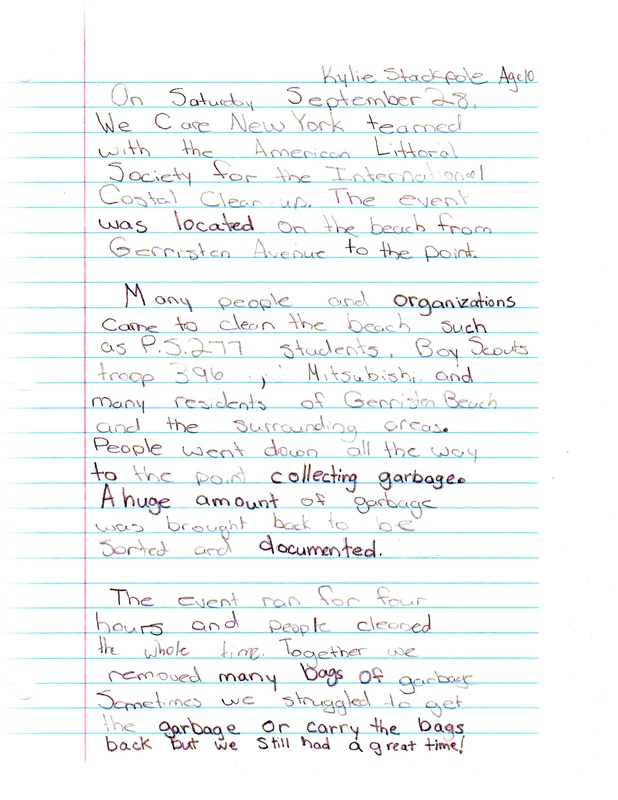 Kylie Stackpole Age 10
On Saturday September 28,
We Care New York teamed
with the American Littoral
Society for the International
Costal Clean up. The event
was located on the beach from
Gerristen Avenue to the point.
Many people and organizations
came to clean the beach such
as P.S.277 students, Boy Scouts
troop 396 , Mitsubishi and
many residents of Gerristen Beach
and the surrounding areas.
People went down all the way
to the point collecting garbage.
A huge amount of garbage
was brought back to be
sorted and documented.
The event ran for four
hours and people cleaned
the whole time. Together we
removed many bags of garbage
Sometimes we struggled to get
the garbage or carry the bags
back but we still had a great time!